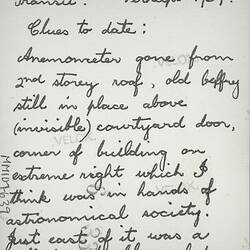 Transit.
Clues to date;
Anemometer gone from
2nd storey roof, old belfry
still in place above
(invisible) courtyard door,
corner of building on
extreme right which I
think was in hands of
astronomical society.
Just east of it was a
VELOX
VELOX
VELOX